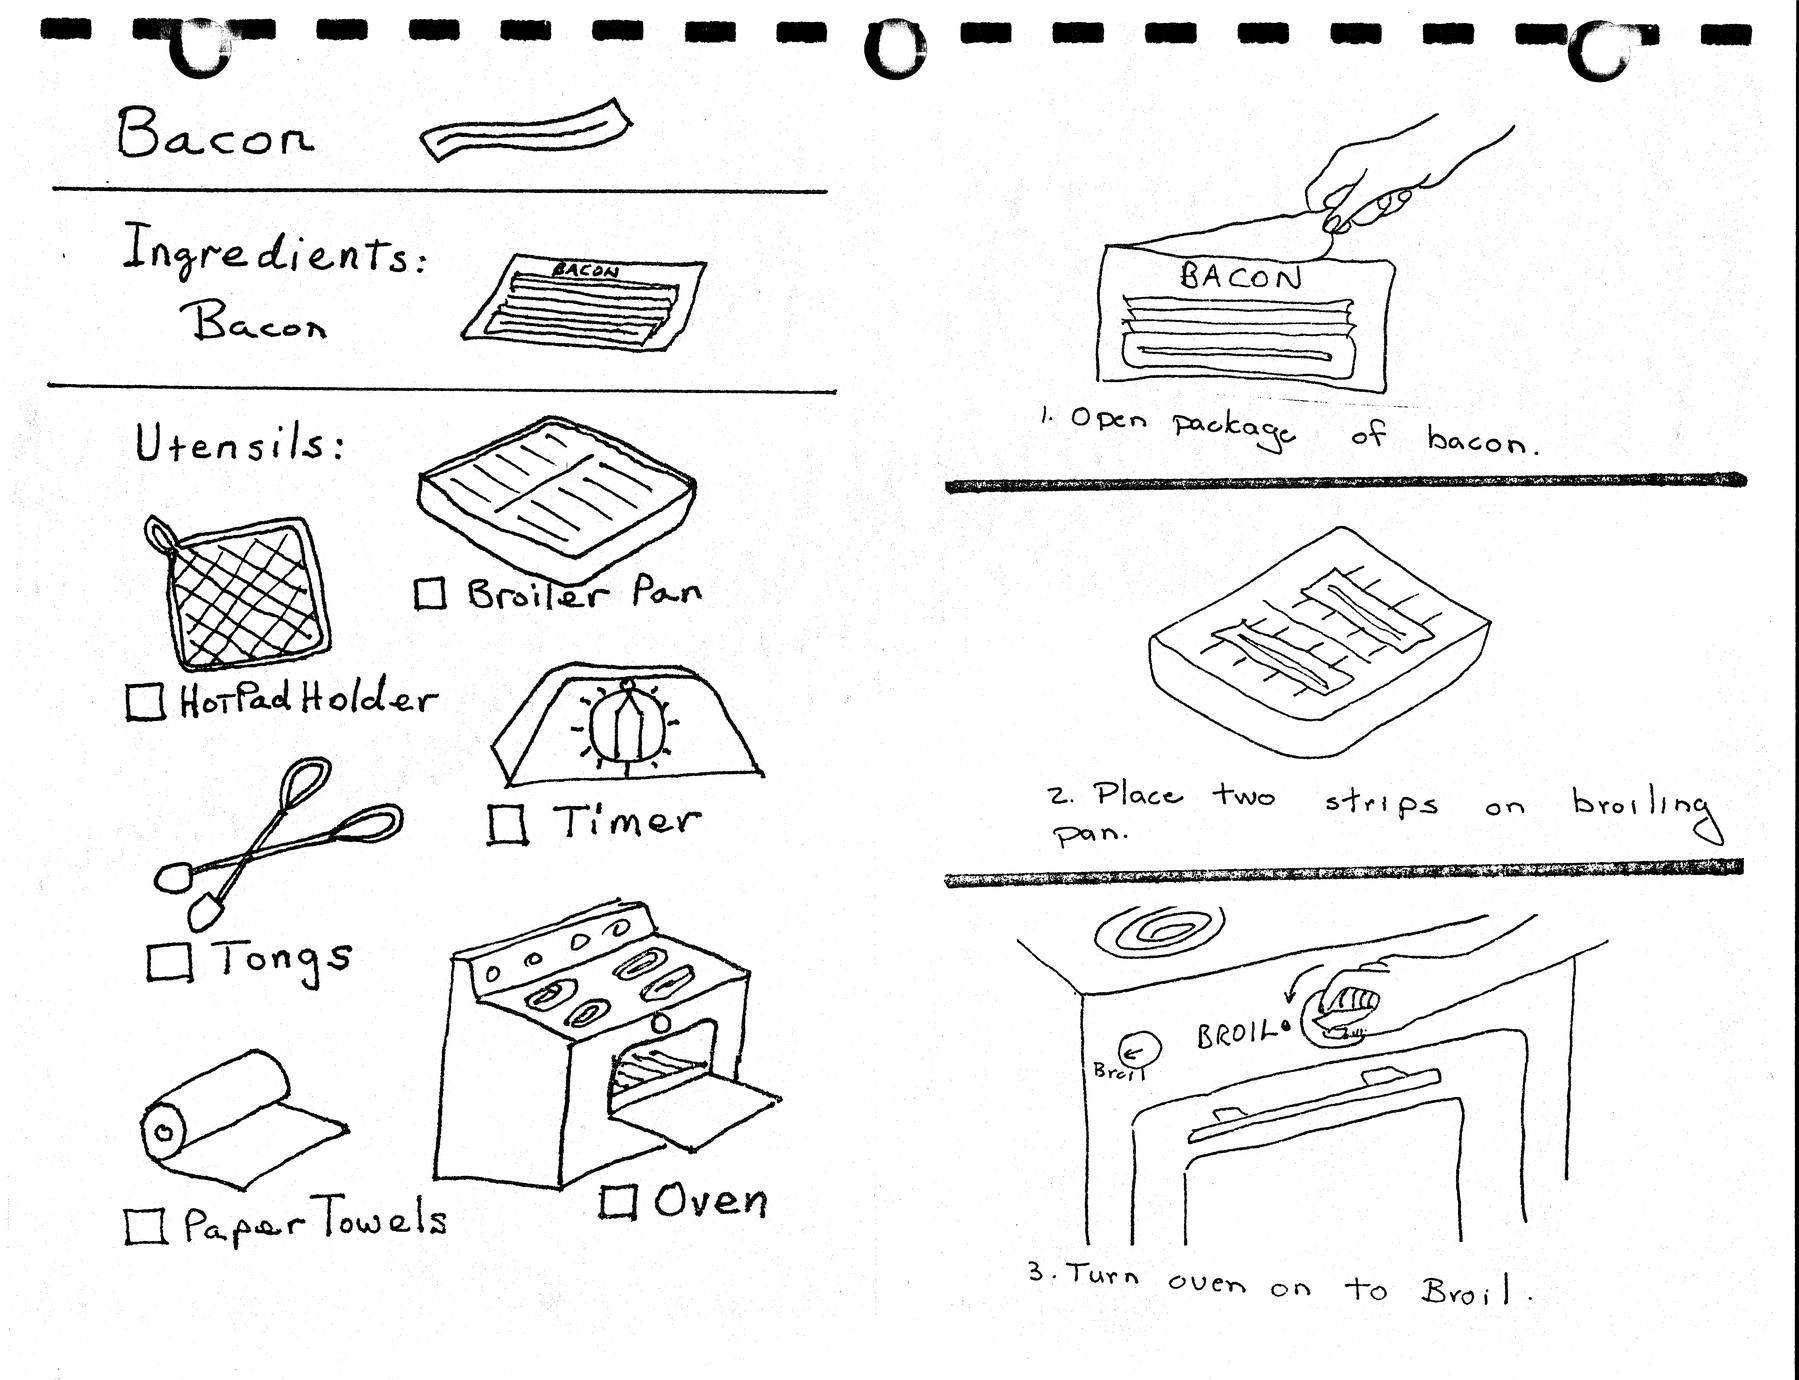 Bacon
Ingredients:
BACON
Bacon
Utensils:
Broiler Pan
HotPad Holder
Timer
Tongs
Oven
Paper Towels
BACON
1. Open package of bacon.
2. Place two strips on broiling
pan.
BROIL
Broil
3. Turn oven on to Broil.